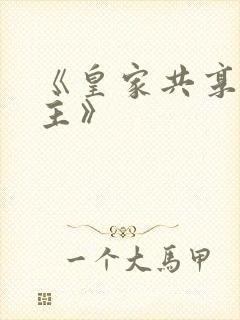 《皇家共享
主》
一个大马甲